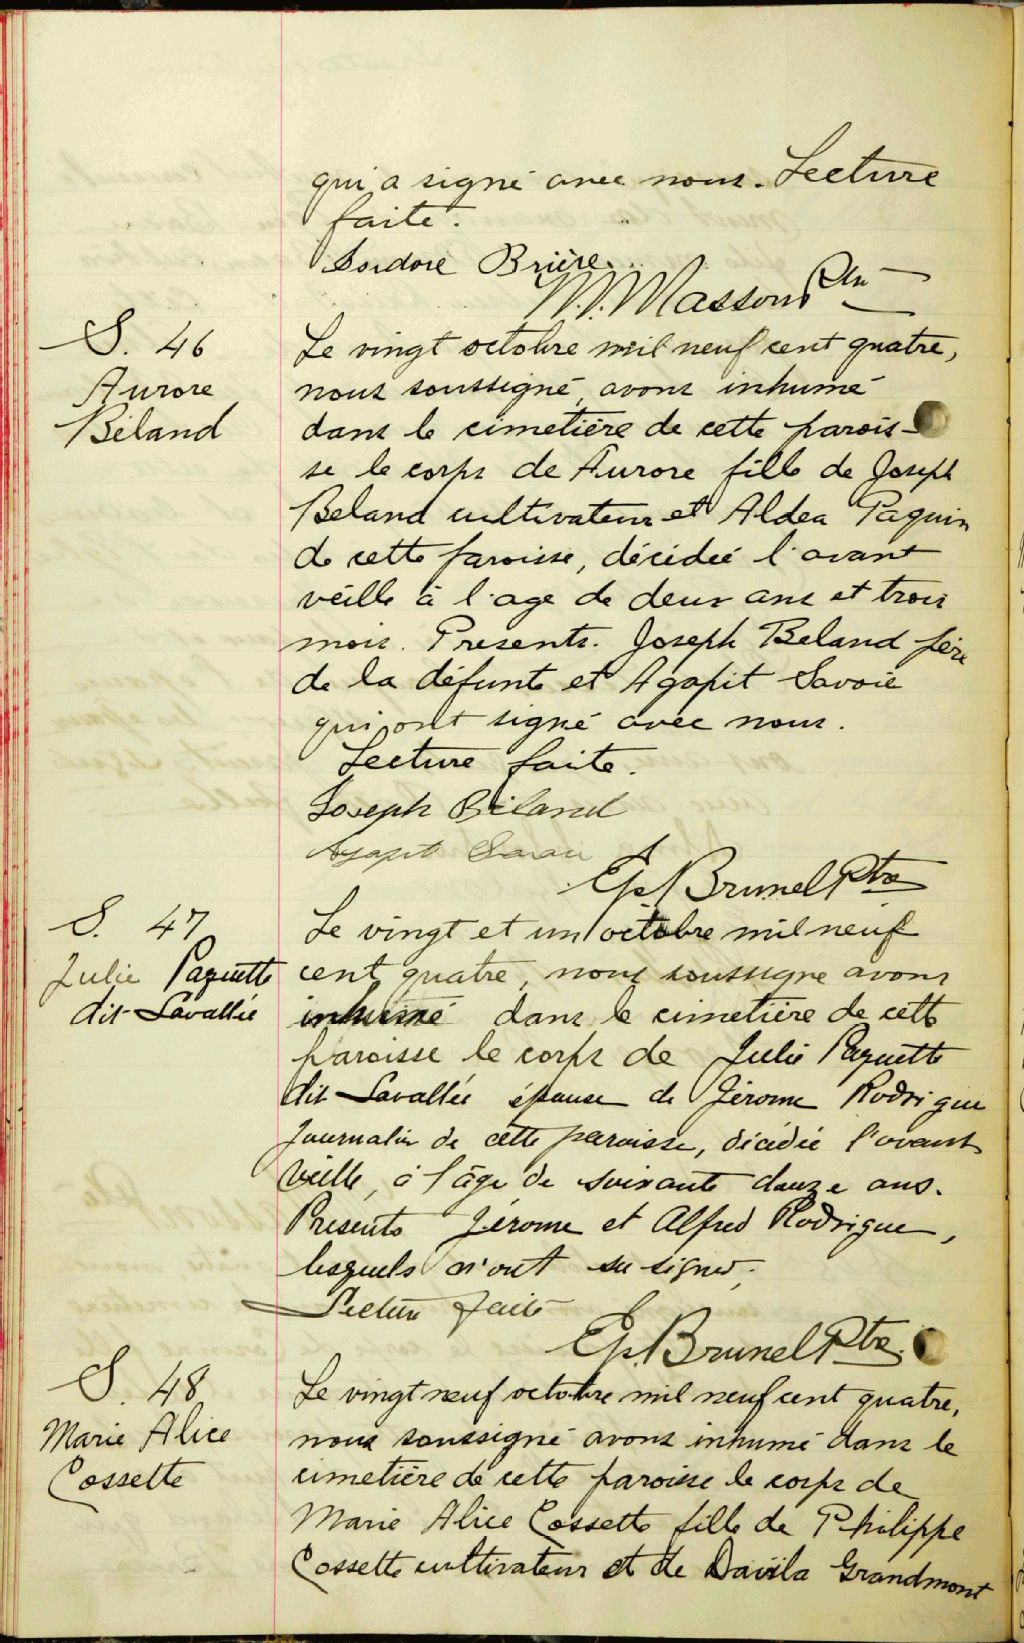 qui a signé avec nous. Lecture
faite.
Isidore Brière.
Masson Ptre
S. 46
Aurore
Béland
Le vingt octobre mil neuf cent quatre,
nous soussigné, avons inhumé
dans le cimetière de cette parois-
se le corps de Aurore fille de Joseph
Beland cultivateur et Aldea Paquin
de cette paroisse, décédée l'avant
veille à l'age de deux ans et trois
mois. Presents. Joseph Beland père
de la défunte et Agapit Savoie
qui ont signé avec nous.
Lecture faite.
Joseph Béland
Agapit Savoie
Ep. Brunel Ptre
S. 47
Julie Paquette
dit Lavallée
Le vingt et un octobre mil neuf
cent quatre, nous soussigne avons
inhumé dans le cimetière de cette
paroisse le corps de Julie Paquette
dit Lavallée épouse de Jérome Rodrigue
journalier de cette paroisse, décédée l'avant
veille, à l'âge de soixante douze ans.
Presents Jérome et Alfred Rodrigue,
lesquels n'ont su signer.
Lecture faite
Ep. Brunel Ptre.
S. 48
Marie Alice
Cossette
Le vingt neuf octobre mil neuf cent quatre,
nous soussigné avons inhumé dans le
cimetière de cette paroisse le corps de
Marie Alice Cossette fille de Philippe
Cossette cultivateur et de Davila Grandmont